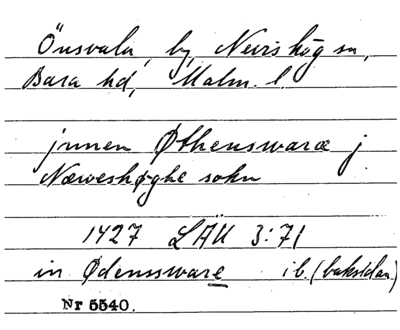 Önsvala, by, Nevishög sn,
Bara hd, Malm. l.
jnnen Øthenswaræ j
Næweshøghe sokn
1427 LÄU 3:71
in Ødenssware ib. (baksidan)
Nr 5540.